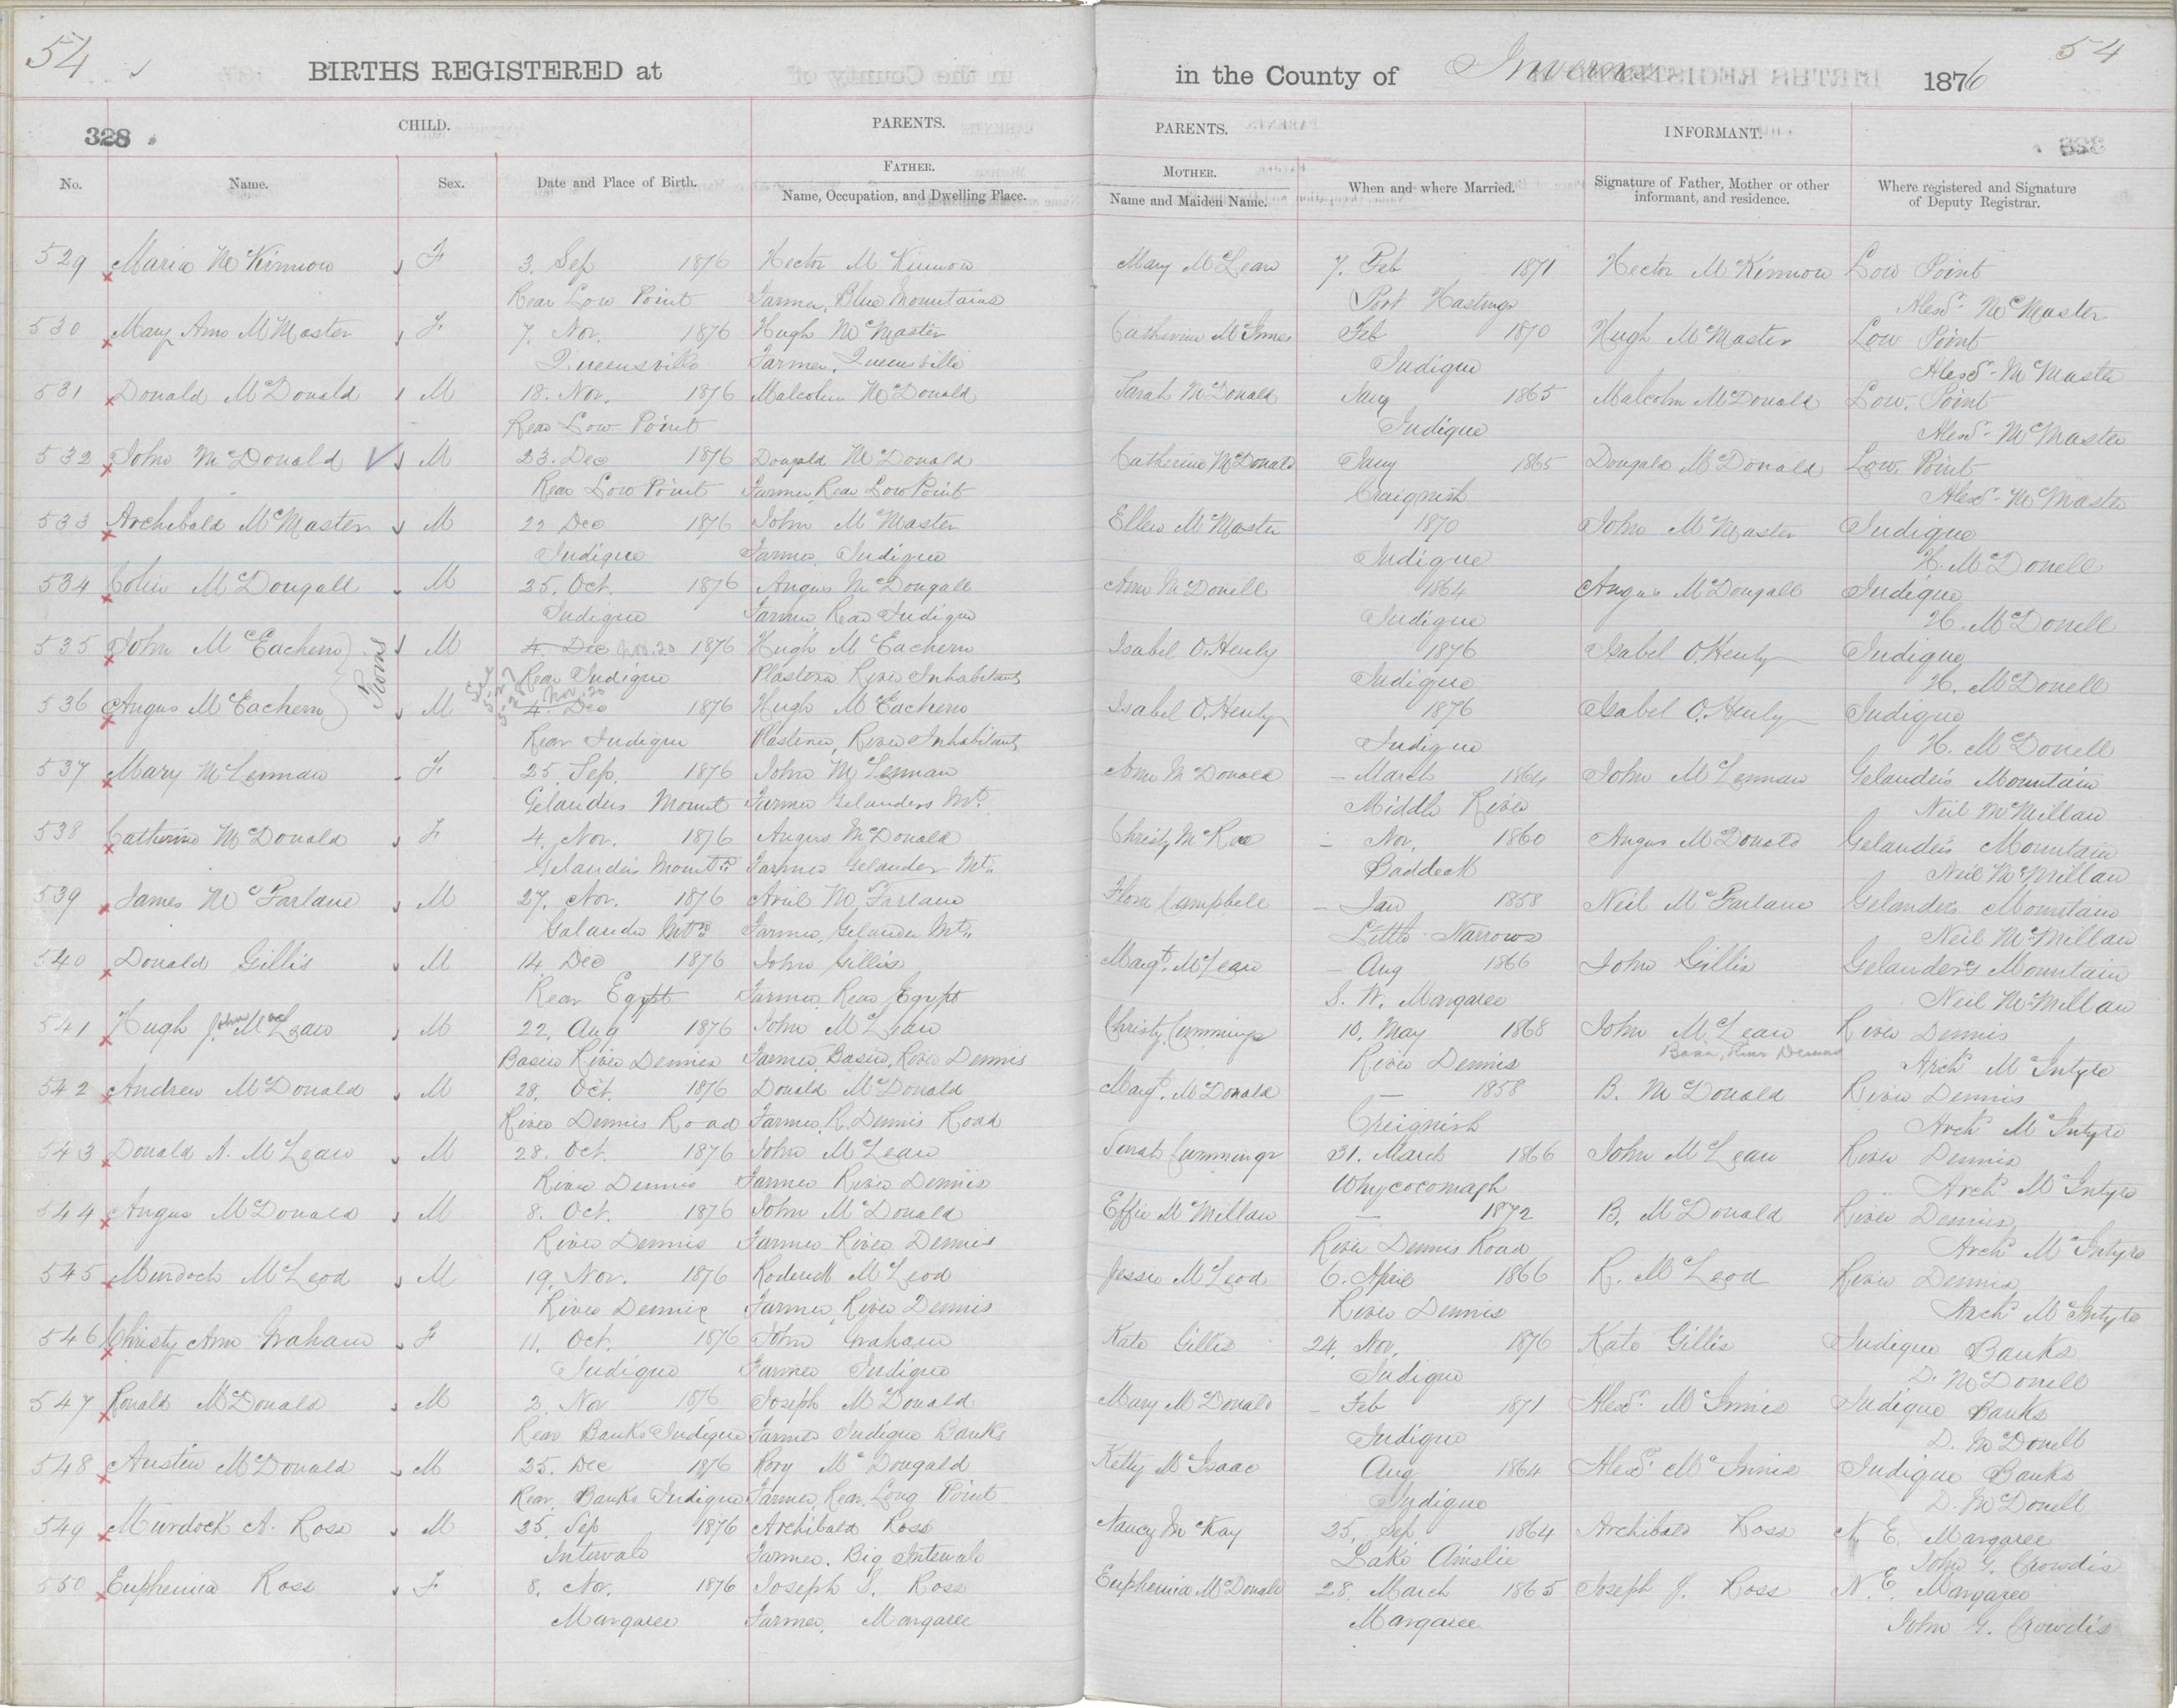 54
54
BIRTHS REGISTERED at
in the County of Inverness 1876
328
CHILD.
PARENTS.
PARENTS.
INFORMANT.
No.
Name.
Sex.
Date and Place of Birth.
FATHER.
Name, Occupation, and Dwelling Place.
MOTHER.
Name and Maiden Name.
When and where Married.
Signature of Father, Mother or other informant, and residence.
Where registered and Signature of Deputy Registrar.
529 Maria McKinnon F 3. Sep 1876 Hector McKinnon Mary McLean 7. Feb 1871 Hector McKinnon Low Point
Rear Low Point Farmer, Blue Mountains Port Hastings Alexr. McMaster
530 Mary Ann McMaster F 7. Nov. 1876 Hugh McMaster Catherine McInnes Feb 1870 Hugh McMaster Low Point
Queensville Farmer, Queensville Judique Alexr. McMaster
531 Donald McDonald M 18. Nov. 1876 Malcolm McDonald Sarah McDonald Jany 1865 Malcolm McDonald Low Point
Rear Low Point Judique Alexr. McMaster
532 John McDonald M 23. Dec 1876 Dougald McDonald Catherine McDonald Jany 1865 Dougald McDonald Low Point
Rear Low Point Farmer, Rear Low Point Craignish Alexr. McMaster
533 Archibald McMaster M 22 Dec 1876 John McMaster Ellen McMaster 1870 John McMaster Judique
Judique Farmer, Judique Judique H. McDonell
534 Colin McDougall M 25. Oct. 1876 Angus McDougall Ann McDonell 1864 Angus McDougall Judique
Judique Farmer, Rear Judique Judique H. McDonell
535 John McEachern Twins M 4. Dec Nov. 20 1876 Hugh McEachern Isabel O'Henly 1876 Isabel O'Henly Judique
Rear Judique Plasterer River Inhabitants Judique H. McDonell
536 Angus McEachern M 4. Dec Nov. 20 1876 Hugh McEachern Isabel O'Henly 1876 Isabel O'Henly Judique
Rear Judique Plasterer, River Inhabitants Judique H. McDonell
537 Mary McLennan F 25. Sep. 1876 John McLennan Ann McDonald – March 1864 John McLennan Gelanders Mountain
Gelanders Mount Farmer Gelanders Mt. Middle River Neil McMillan
538 Catherine McDonald F 4. Nov. 1876 Angus McDonald Christy McRae – Nov. 1860 Angus McDonald Gelanders Mountain
Gelanders Mountn Farmer Gelander Mt. Baddeck Neil McMillan
539 James McFarlane M 27. Nov. 1876 Neil McFarlane Flora Campbell – Jan 1858 Neil McFarlane Gelanders Mountain
Galander Mtn Farmer, Gelander Mt. Little Narrows Neil McMillan
540 Donald Gillis M 14 Dec 1876 John Gillis Margt. McLean – Aug 1866 John Gillis Gelanders Mountain
Rear Egypt Farmer Rear Egypt S. W. Margaree Neil McMillan
541 Hugh J. John McLean M 22. Aug 1876 John McLean Christy Cummings 10. May 1868 John McLean River Dennis
Basin River Dennis Farmer, Basin, River Dennis River Dennis Basin, River Dennis Archd McIntyre
542 Andrew McDonald M 28. Oct. 1876 Donald McDonald Margt. McDonald – 1858 B. McDonald River Dennis
River Dennis Road Farmer, R. Dennis Road Creignish Archd McIntyre
543 Donald A. McLean M 28. Oct. 1876 John McLean Sarah Cummings 31. March 1866 John McLean River Dennis
River Dennis Farmer River Dennis Whycocomagh Archd McIntyre
544 Angus McDonald M 8. Oct. 1876 John McDonald Effie McMillan – 1872 B. McDonald River Dennis
River Dennis Farmer River Dennis River Dennis Road Archd McIntyre
545 Murdoch McLeod M 19. Nov. 1876 Roderick McLeod Jessie McLeod 6. April 1866 R. McLeod River Dennis
River Dennis Farmer, River Dennis River Dennis Archd McIntyre
546 Christy Ann Graham F 11. Oct. 1876 John Graham Kate Gillis 24. Nov. 1876 Kate Gillis Judique Banks
Judique Farmer Judique Judique D. McDonell
547 Ronald McDonald M 2. Nov 1876 Joseph McDonald Mary McDonald – Feb 1871 Alexr. McInnis Judique Banks
Rear Banks Judique Farmer Judique Banks Judique D. McDonell
548 Austin McDonald M 25. Dec 1876 Rory McDougald Ketty McIsaac Aug 1864 Alexr. McInnis Judique Banks
Rear Banks Judique Farmer, Rear, Long Point Judique D. McDonell
549 Murdock A. Ross M 25. Sep 1876 Archibald Ross Nancy McKay 25. Sep 1864 Archibald Ross N. E. Margaree
Intervale Farmer. Big Intervale Lake Ainslie John G. Crowdis
550 Euphemia Ross F 8. Nov. 1876 Joseph S. Ross Euphemia McDonald 28. March 1865 Joseph J. Ross N. E. Margaree
Margaree Farmer, Margaree Margaree John G. Crowdis